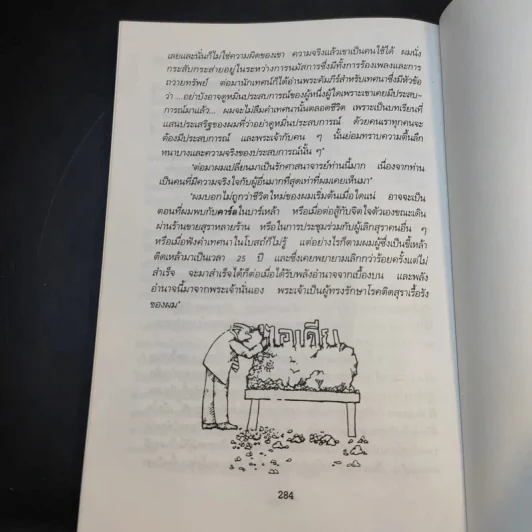 เลยและนั่นก็ไม่ใช่ความผิดของเขา ความจริงแล้วเขาเป็นคนใช้ได้ ผมนั่ง
กระสับกระส่ายอยู่ในระหว่างการนมัสการซึ่งมีทั้งการร้องเพลงและการ
ถวายทรัพย์ ต่อมานักเทศน์ก็ได้อ่านพระคัมภีร์สำหรับเทศนาซึ่งมีหัวข้อ
ว่า ...อย่าบังอาจดูหมิ่นประสบการณ์ของผู้หนึ่งผู้ใดเพราะเขาเคยมีประสบ-
การณ์มาแล้ว... ผมจะไม่ลืมคำเทศนานั้นตลอดชีวิต เพราะเป็นบทเรียนที่
แสนประเสริฐของผมที่ว่าอย่าดูหมิ่นประสบการณ์ ด้วยคนเราทุกคนจะ
ต้องมีประสบการณ์ และพระเจ้ากับคน ๆ นั้นย่อมทราบความตื้นลึก
หนาบางและความจริงของประสบการณ์นั้น ๆ"
"ต่อมาผมเปลี่ยนมาเป็นรักศาสนาจารย์ท่านนี้มาก เนื่องจากท่าน
เป็นคนที่มีความจริงใจกับผู้อื่นมากที่สุดเท่าที่ผมเคยเห็นมา"
"ผมบอกไม่ถูกว่าชีวิตใหม่ของผมเริ่มต้นเมื่อใดแน่ อาจจะเป็น
ตอนที่ผมพบกับคาร์ลในบาร์เหล้า หรือเมื่อต่อสู้กับจิตใจตัวเองขณะเดิน
ผ่านร้านขายสุราหลายร้าน หรือในการประชุมร่วมกับผู้เลิกสุราคนอื่น ๆ
หรือเมื่อฟังคำเทศนาในโบสถ์ก็ไม่รู้ แต่อย่างไรก็ตามผมผู้ซึ่งเป็นขี้เหล้า
ติดเหล้ามาเป็นเวลา 25 ปี และซึ่งเคยพยายามเลิกกว่าร้อยครั้งแต่ไม่
สำเร็จ จะมาสำเร็จได้ก็ต่อเมื่อได้รับพลังอำนาจจากเบื้องบน และพลัง
อำนาจนี้มาจากพระเจ้านั่นเอง พระเจ้าเป็นผู้ทรงรักษาโรคติดสุราเรื้อรัง
ของผม"
ไอเดีย
284